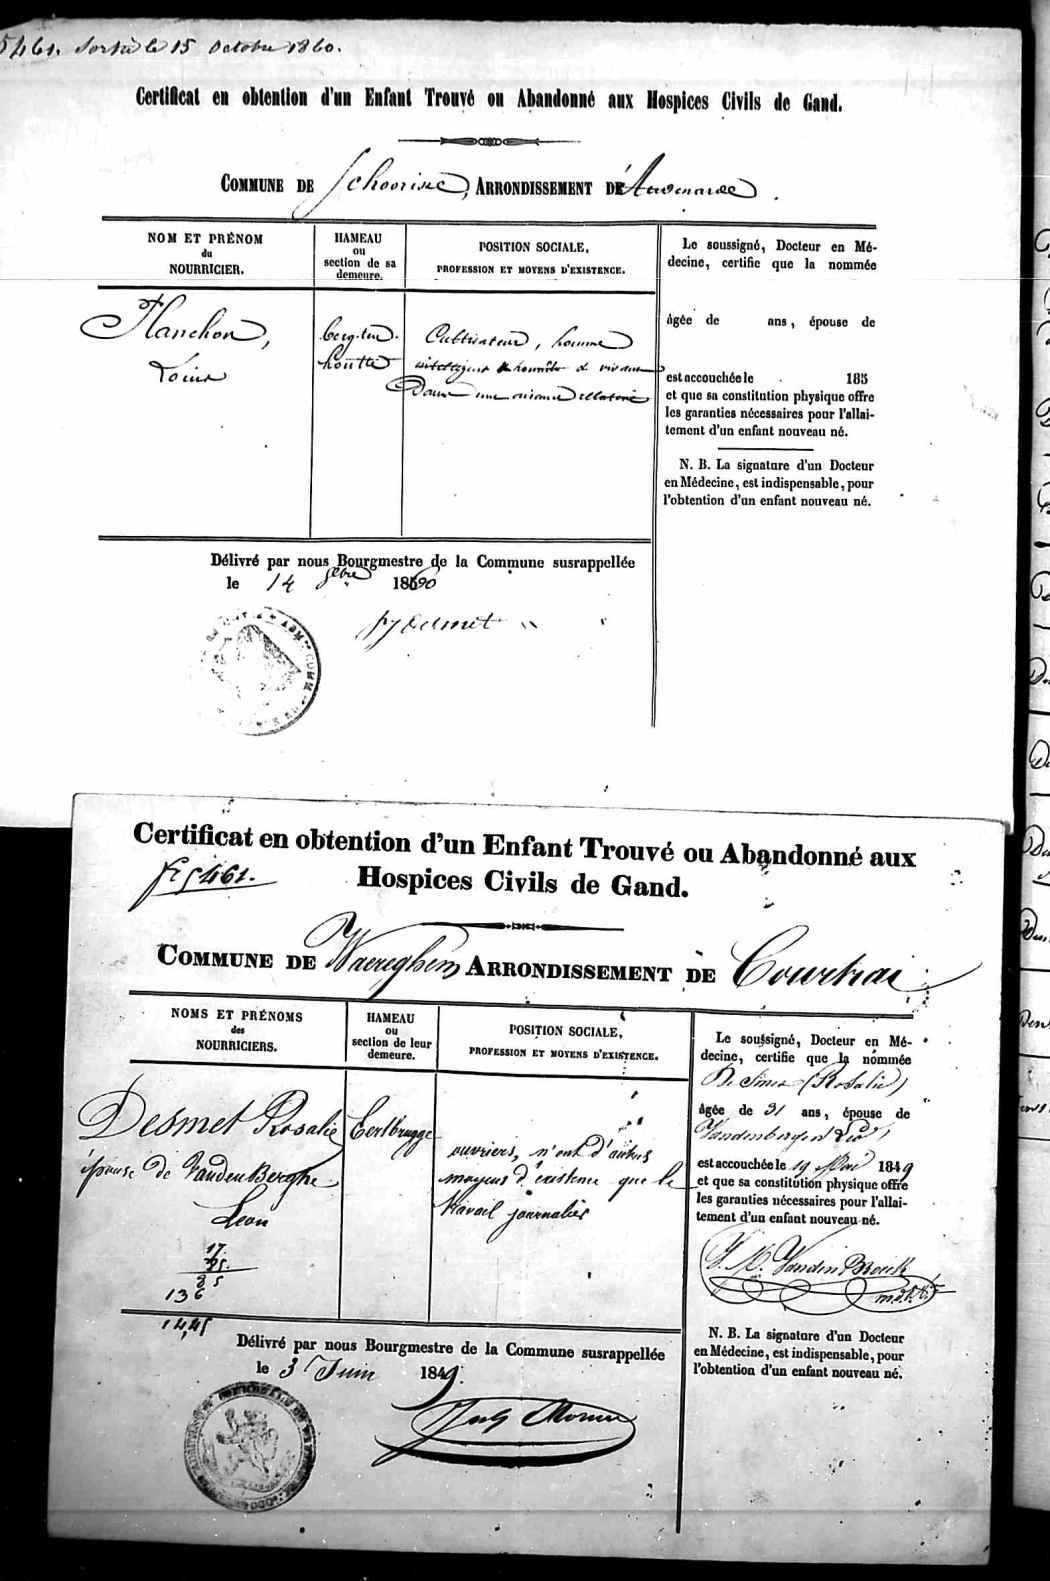 5461. Sortie le 15 Octobre 1860.
Certificat en obtention d'un Enfant Trouvé ou Abandonné aux Hospices Civils de Gand.
COMMUNE DE Schoorisse, ARRONDISSEMENT DE Audenarde.
NOM ET PRÉNOM
du
NOURRICIER.
HAMEAU
ou
section de sa
demeure.
POSITION SOCIALE,
PROFESSION ET MOYENS D'EXISTENCE.
Planchon,
Louis
berg-ten-
houtte
Cultivateur, homme
intelligent & honnête & vivant
Dans une aisance
Le soussigné, Docteur en Mé-
decine, certifie que la nommée
âgée de ans, épouse de
est accouchée le 185
et que sa constitution physique offre
les garanties nécessaires pour l'allai-
tement d'un enfant nouveau né.
N. B. La signature d'un Docteur
en Médecine, est indispensable, pour
l'obtention d'un enfant nouveau né.
Délivré par nous Bourgmestre de la Commune susrappellée
le 14 8bre 1860
Desmet
Certificat en obtention d'un Enfant Trouvé ou Abandonné aux
Hospices Civils de Gand.
5461.
COMMUNE DE Waereghem ARRONDISSEMENT DE Courtrai
NOMS ET PRÉNOMS
des
NOURRICIERS.
HAMEAU
ou
section de leur
demeure.
POSITION SOCIALE,
PROFESSION ET MOYENS D'EXISTENCE.
Desmet Rosalie
épouse de VandenBerghe
Leon
17.
25.
136
14,45
Eertbrugge
ouvriers, n'ont d'autres
moyens d'existence que le
travail journalier
Le soussigné, Docteur en Mé-
decine, certifie que la nommée
De Smet (Rosalie)
âgée de 31 ans, épouse de
Vandenberghen Leo
est accouchée le 19 Mai 1849
et que sa constitution physique offre
les garanties nécessaires pour l'allai-
tement d'un enfant nouveau né.
VandenBroeck
N. B. La signature d'un Docteur
en Médecine, est indispensable, pour
l'obtention d'un enfant nouveau né.
Délivré par nous Bourgmestre de la Commune susrappellée
le 3 Juin 1849.